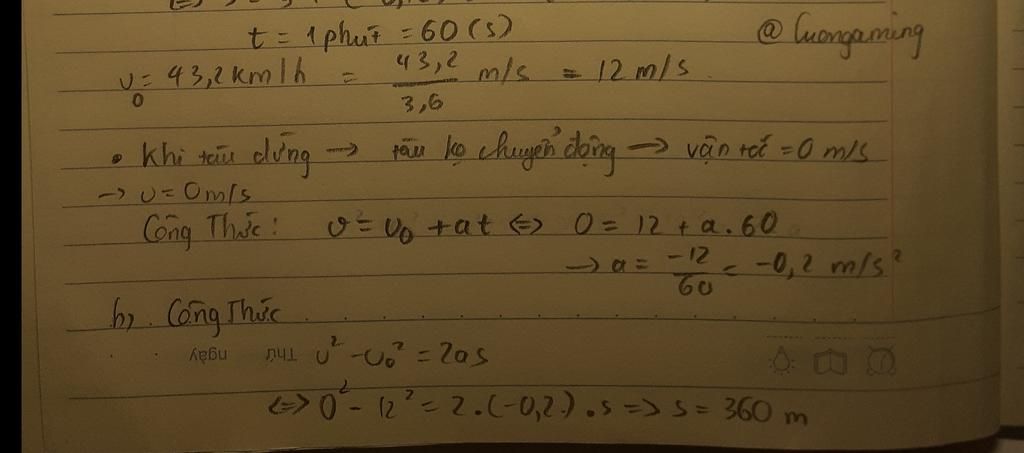 t = 1 phút = 60 (s)
@ Cuongaming
v₀ = 43,2 km/h = 43,2/3,6 m/s = 12 m/s.
• Khi tàu dừng → tàu ko chuyển động → vận tốc = 0 m/s
→ v = 0 m/s
Công Thức: v = v₀ + at ⇔ 0 = 12 + a.60
→ a = -12/60 = -0,2 m/s²
b, . Công Thức
v² - v₀² = 2as
Thứ ngày
⇔ 0² - 12² = 2.(-0,2).s => s = 360 m